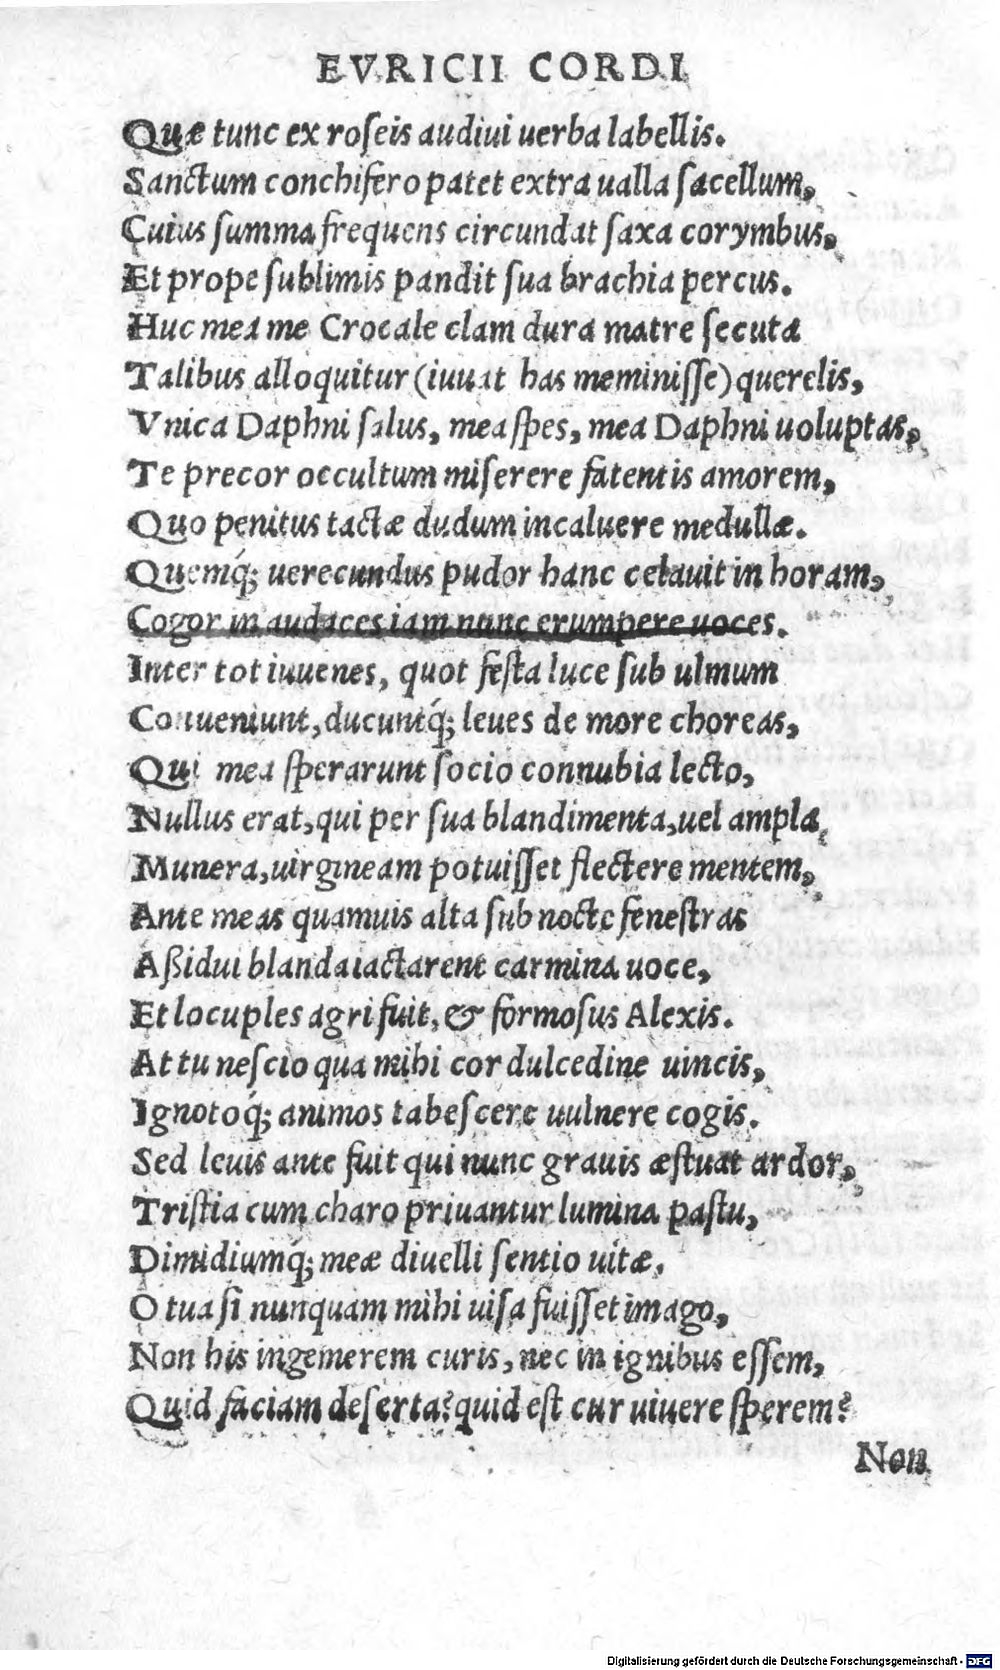 EVRICII CORDI
Quæ tunc ex roſeis audiui uerba labellis.
Sanctum conchifero patet extra ualla ſacellum,
Cuius ſumma frequens circundat ſaxa corymbus,
Et prope ſublimis pandit ſua brachia percus.
Huc mea me Crocale clam dura matre ſecuta
Talibus alloquitur (iuuat has meminiſſe) querelis,
Vnica Daphni ſalus, mea ſpes, mea Daphni uoluptas,
Te precor occultum miſerere fatentis amorem,
Quo penitus tactæ dudum incaluere medullæ.
Quemq́; uerecundus pudor hanc celauit in horam,
Cogor in audaces iam nunc erumpere uoces.
Inter tot iuuenes, quot feſta luce ſub ulmum
Conueniunt, ducuntq́; leues de more choreas,
Qui mea ſperarunt ſocio connubia lecto,
Nullus erat, qui per ſua blandimenta, uel ampla
Munera, uirgineam potuiſſet flectere mentem,
Ante meas quamuis alta ſub nocte feneſtras
Aßidui blanda iactarent carmina uoce,
Et locuples agri fuit, & formoſus Alexis.
At tu neſcio qua mihi cor dulcedine uincis,
Ignotoq́; animos tabeſcere uulnere cogis.
Sed leuis ante fuit qui nunc grauis æſtuat ardor,
Triſtia cum charo priuantur lumina paſtu,
Dimidiumq́; meæ diuelli ſentio uitæ,
O tua ſi nunquam mihi uiſa fuiſſet imago,
Non his ingemerem curis, nec in ignibus eſſem,
Quid faciam deſerta? quid eſt cur uiuere ſperem?
Non
Digitalisierung gefördert durch die Deutsche Forschungsgemeinschaft - DFG